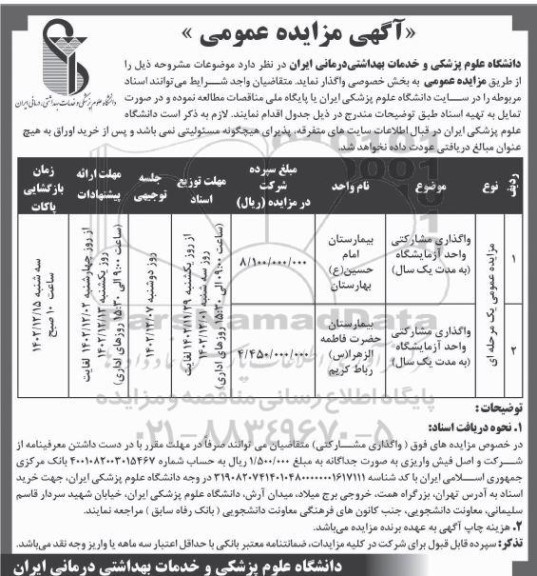 «آگهی مزایده عمومی»
دانشگاه علوم پزشکی و خدمات بهداشتی درمانی ایران
دانشگاه علوم پزشکی و خدمات بهداشتی‌درمانی ایران در نظر دارد موضوعات مشروحه ذیل را
از طریق مزایده عمومی به بخش خصوصی واگذار نماید. متقاضیان واجد شرایط می‌توانند اسناد
مربوطه را در سایت دانشگاه علوم پزشکی ایران یا پایگاه ملی مناقصات مطالعه نموده و در صورت
تمایل به تهیه اسناد طبق توضیحات مندرج در ذیل جدول اقدام نمایند. لازم به ذکر است دانشگاه
علوم پزشکی ایران در قبال اطلاعات سایت های متفرقه، پذیرای هیچگونه مسئولیتی نمی باشد و پس از خرید اوراق به هیچ
عنوان مبالغ دریافتی عودت داده نخواهد شد.
ردیف
نوع
موضوع
نام واحد
مبلغ سپرده
شرکت
در مزایده (ریال)
مهلت توزیع
اسناد
جلسه
توجیهی
مهلت ارائه
پیشنهادات
زمان
بازگشایی
پاکات
۱
مزایده عمومی یک مرحله ای
واگذاری مشارکتی
واحد آزمایشگاه
(به مدت یک سال)
بیمارستان
امام
حسین(ع)
بهارستان
۸/۱۰۰/۰۰۰/۰۰۰
از روز یکشنبه ۱۴۰۲/۱۱/۲۹ لغایت
روز سه شنبه ۱۴۰۲/۱۲/۰۱
(ساعت ۰۹:۰۰ الی ۱۵:۳۰ روزهای اداری)
روز دوشنبه ۱۴۰۲/۱۲/۰۷
از روز چهارشنبه ۱۴۰۲/۱۲/۰۲ لغایت
روز یکشنبه ۱۴۰۲/۱۲/۱۳
(ساعت ۰۹:۰۰ الی ۱۵:۳۰ روزهای اداری)
سه شنبه ۱۴۰۲/۱۲/۱۵
ساعت ۱۰ صبح
۲
واگذاری مشارکتی
واحد آزمایشگاه
(به مدت یک سال)
بیمارستان
حضرت فاطمه
الزهرا(س)
رباط کریم
۴/۴۵۰/۰۰۰/۰۰۰
ParsNamadData
پایگاه اطلاع رسانی مناقصه و مزایده
۰۲۱-۸۸۳۴۹۶۷۰-۵
توضیحات:
۱. نحوه دریافت اسناد:
در خصوص مزایده های فوق (واگذاری مشارکتی) متقاضیان می توانند صرفاً در مهلت مقرر با در دست داشتن معرفینامه از
شرکت و اصل فیش واریزی به صورت جداگانه به مبلغ ۱/۵۰۰/۰۰۰ ریال به حساب شماره ۴۰۰۱۰۸۲۰۰۳۰۱۵۴۶۷ بانک مرکزی
جمهوری اسلامی ایران با کد شناسه در وجه دانشگاه علوم پزشکی ایران، جهت خرید
اسناد به آدرس تهران، بزرگراه همت، خروجی برج میلاد، میدان آرش، دانشگاه علوم پزشکی ایران، خیابان شهید سردار قاسم
سلیمانی، معاونت دانشجویی، جنب کانون های فرهنگی معاونت دانشجویی (بانک رفاه سابق) مراجعه نمایند.
۲. هزینه چاپ آگهی به عهده برنده مزایده می‌باشد.
تذکر: سپرده قابل قبول برای شرکت در کلیه مزایدات، ضمانتنامه معتبر بانکی با حداقل اعتبار سه ماهه یا واریز وجه نقد می‌باشد.
دانشگاه علوم پزشکی و خدمات بهداشتی درمانی ایران